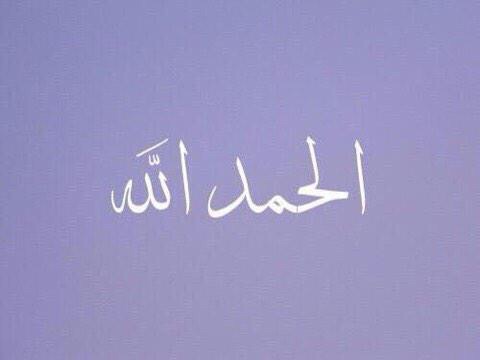 الحمد الله